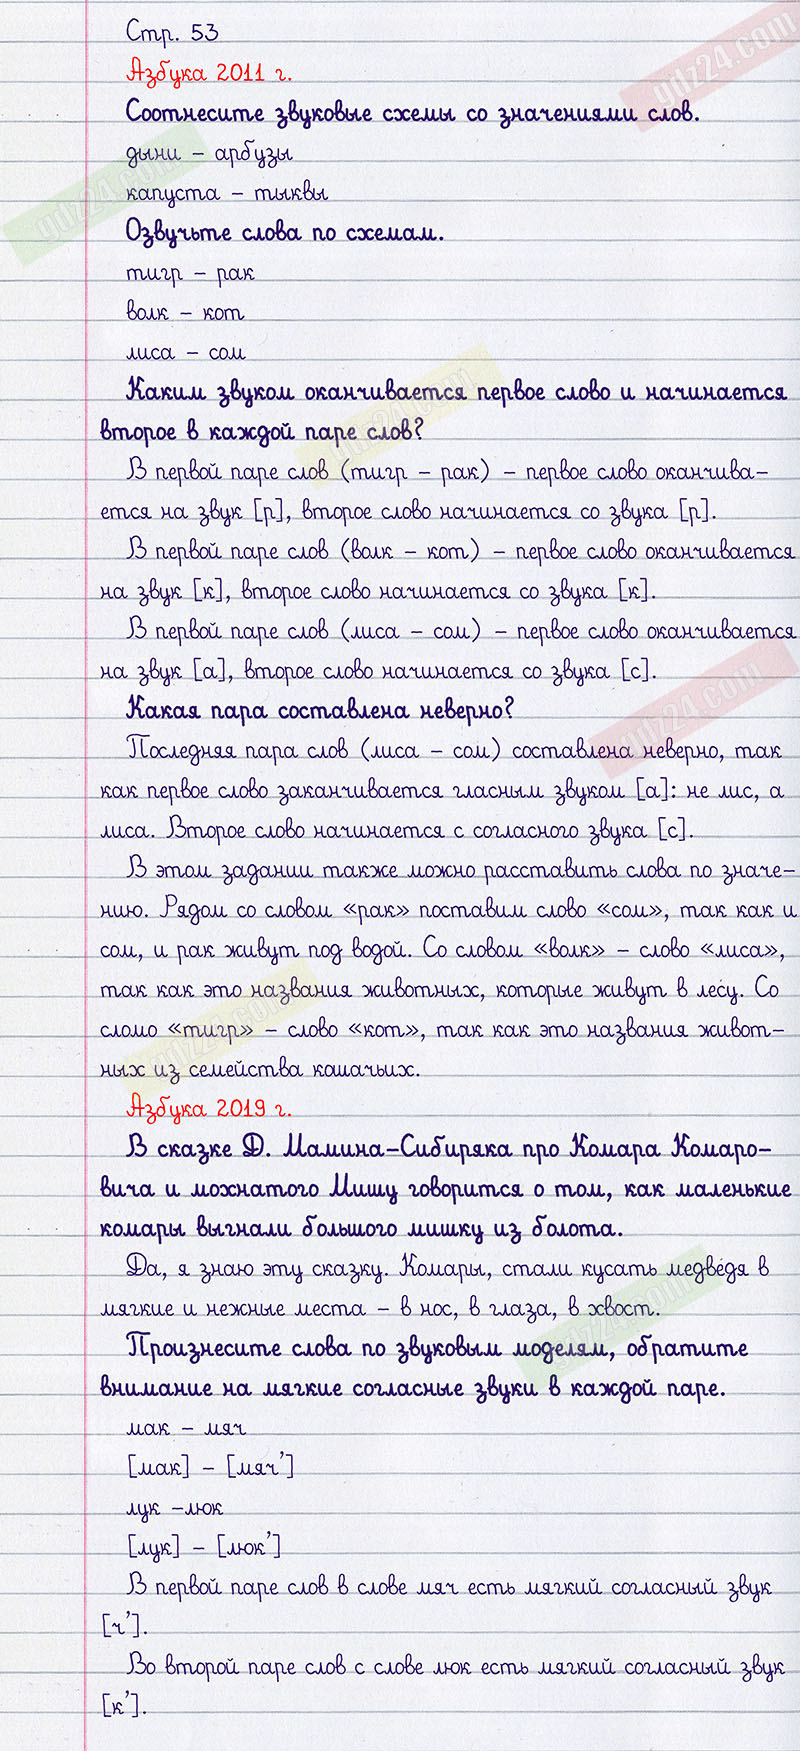 Стр. 53
Азбука 2011 г.
Соотнесите звуковые схемы со значениями слов.
дыни – арбузы
капуста – тыквы
Озвучьте слова по схемам.
тигр – рак
волк – кот
лиса – сом
Каким звуком оканчивается первое слово и начинается
второе в каждой паре слов?
В первой паре слов (тигр – рак) – первое слово оканчива-
ется на звук [р], второе слово начинается со звука [р].
В первой паре слов (волк – кот) – первое слово оканчивается
на звук [к], второе слово начинается со звука [к].
В первой паре слов (лиса – сом) – первое слово оканчивается
на звук [а], второе слово начинается со звука [с].
Какая пара составлена неверно?
Последняя пара слов (лиса – сом) составлена неверно, так
как первое слово заканчивается гласным звуком [а]: не лис, а
лиса. Второе слово начинается с согласного звука [с].
В этом задании также можно расставить слова по значе-
нию. Рядом со словом «рак» поставим слово «сом», так как и
сом, и рак живут под водой. Со словом «волк» – слово «лиса»,
так как это названия животных, которые живут в лесу. Со
сломо «тигр» – слово «кот», так как это названия живот-
ных из семейства кошачьих.
Азбука 2019 г.
В сказке Д. Мамина-Сибиряка про Комара Комаро-
вича и мохнатого Мишу говорится о том, как маленькие
комары выгнали большого мишку из болота.
Да, я знаю эту сказку. Комары, стали кусать медведя в
мягкие и нежные места – в нос, в глаза, в хвост.
Произнесите слова по звуковым моделям, обратите
внимание на мягкие согласные звуки в каждой паре.
мак – мяч
[мак] – [мяч’]
лук –люк
[лук] – [люк’]
В первой паре слов в слове мяч есть мягкий согласный звук
[ч’].
Во второй паре слов с слове люк есть мягкий согласный звук
[к’].
gdz24.com
gdz24.com
gdz24.com
gdz24.com
gdz24.com
gdz24.com